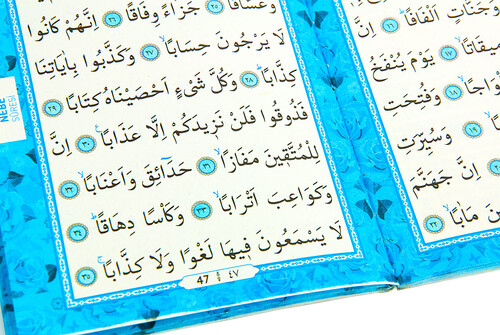 وَغَسَّاقًا ﴿٢٥﴾ جَزَاءً وِفَاقًا ﴿٢٦﴾ اِنَّهُمْ كَانُوا
لَا يَرْجُونَ حِسَابًا ﴿٢٧﴾ وَكَذَّبُوا بِاٰيَاتِنَا
كِذَّابًا ﴿٢٨﴾ وَكُلَّ شَیْءٍ اَحْصَيْنَاهُ كِتَابًا ﴿٢٩﴾
فَذُوقُوا فَلَنْ نَزِيدَكُمْ اِلَّا عَذَابًا ﴿٣٠﴾ اِنَّ
لِلْمُتَّقِينَ مَفَازًا ﴿٣١﴾ حَدَائِقَ وَاَعْنَابًا ﴿٣٢﴾
وَكَوَاعِبَ اَتْرَابًا ﴿٣٣﴾ وَكَأْسًا دِهَاقًا ﴿٣٤﴾
لَا يَسْمَعُونَ فِيهَا لَغْوًا وَلَا كِذَّابًا ﴿٣٥﴾
47 ٤٧
NEBE
SURESİ
وَجَنَّاتٍ اَلْفَافًا ﴿١٦﴾ اِنَّ
﴿١٧﴾ يَوْمَ يُنْفَخُ
﴿١٨﴾ وَفُتِحَتِ
وَسُيِّرَتِ
اِنَّ جَهَنَّمَ
مَاٰبًا ﴿٢٢﴾